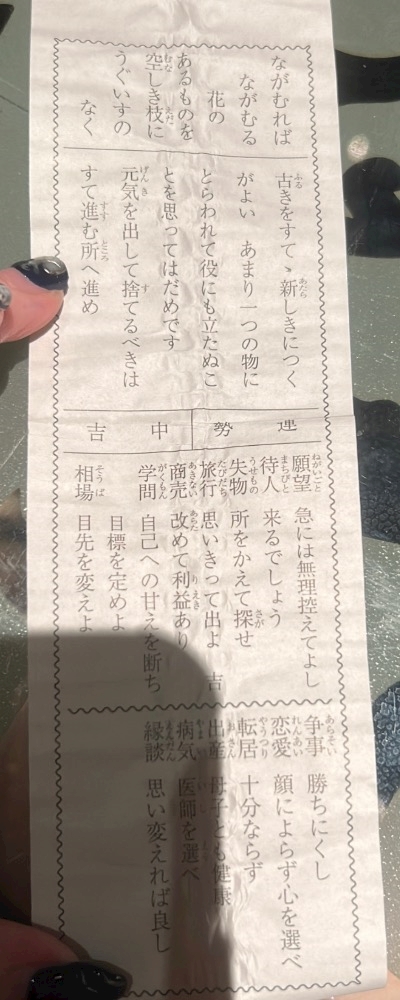 ながむれば
ながむる
花の
あるものを
空しき枝に
うぐいすの
なく
古きをすてゝ新しきにつく
がよい あまり一つの物に
とらわれて役にも立たぬこ
とを思ってはだめです
元気を出して捨てるべきは
すて進む所へ進め
運勢
中吉
願望 急には無理控えてよし
待人 来るでしょう
失物 所をかえて探せ
旅行 思いきって出よ 吉
商売 改めて利益あり
学問 自己への甘えを断ち
目標を定めよ
相場 目先を変えよ
争事 勝ちにくし
恋愛 顔によらず心を選べ
転居 十分ならず
出産 母子とも健康
病気 医師を選べ
縁談 思い変えれば良し